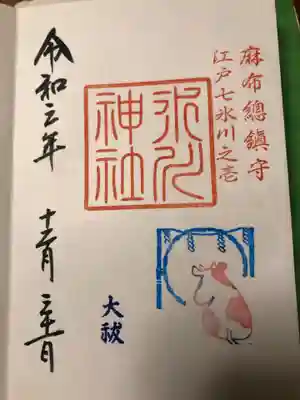 麻布總鎮守
江戸七氷川之壱
氷川
神社
大祓
令和二年 十二月三十一日